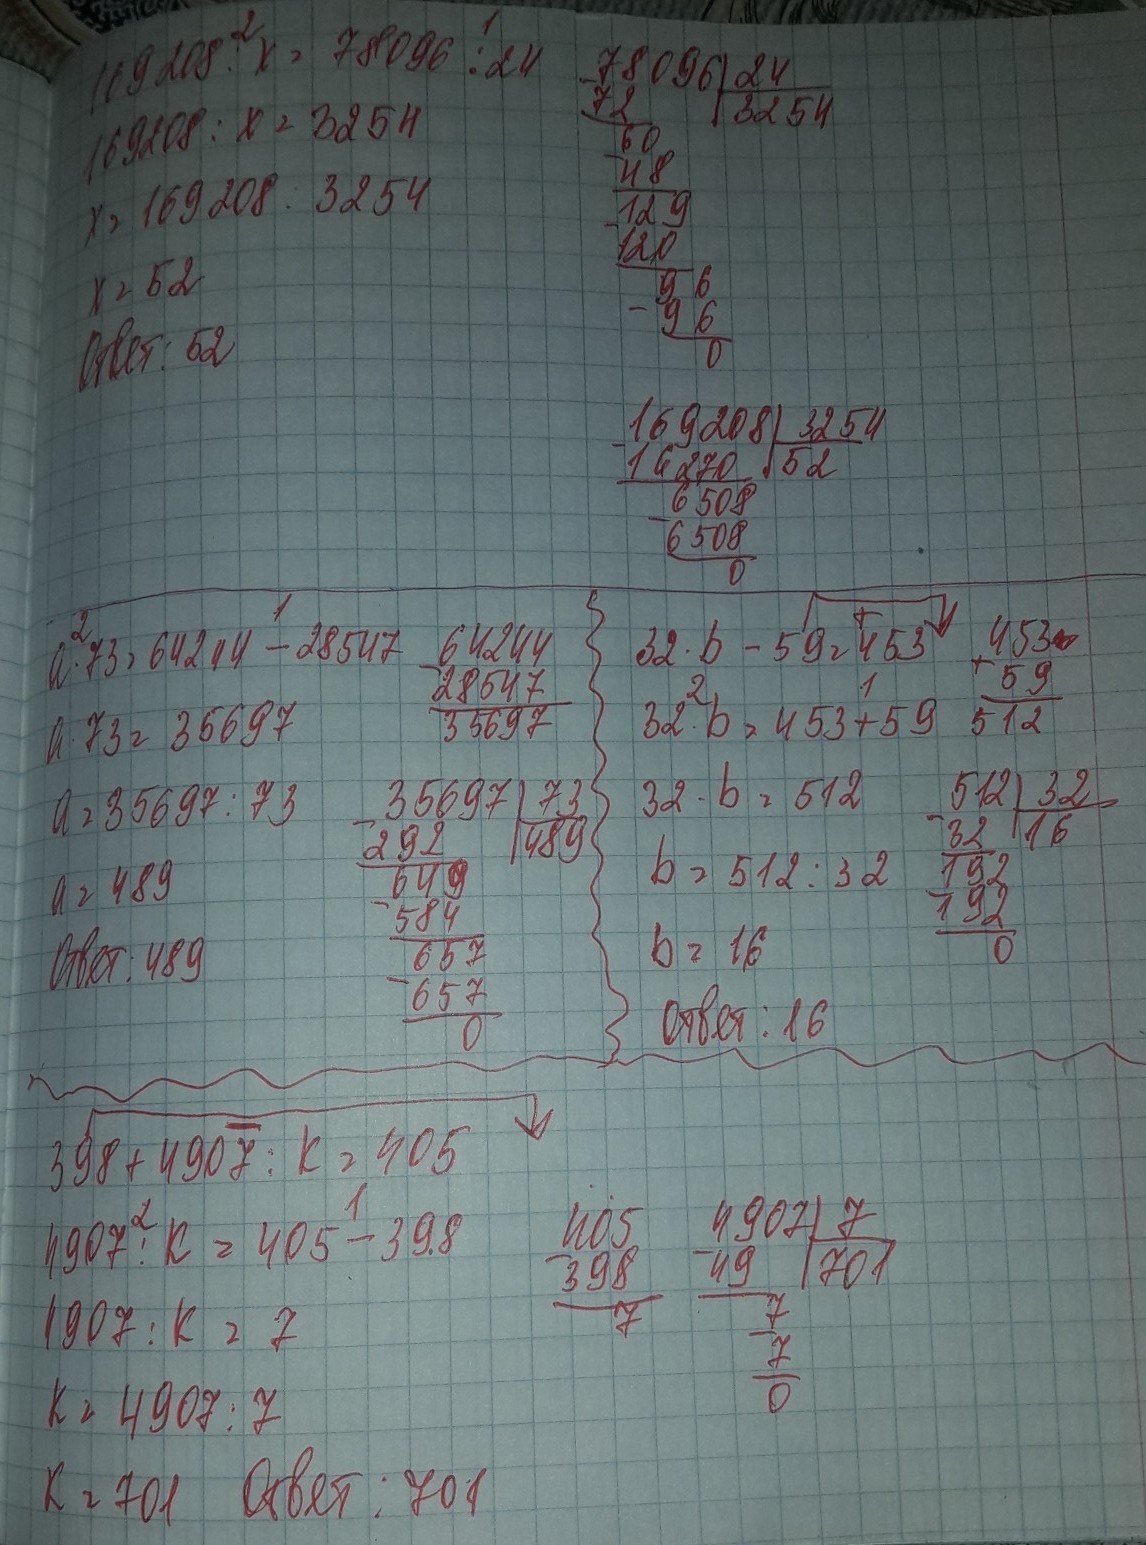 169208 : x = 78096 : 24
2 1
169208 : x = 3254
x = 169208 : 3254
x = 52
Ответ: 52
78096 | 24
- 72 | 3254
60
- 48
129
- 120
96
- 96
0
169208 | 3254
- 16270 | 52
6508
- 6508
0
2 1
a · 73 = 64244 - 28547
a · 73 = 35697
a = 35697 : 73
a = 489
Ответ: 489
64244
- 28547
35697
35697 | 73
- 292 | 489
649
- 584
657
- 657
0
+
32 · b - 59 = 453
2 1
32 · b = 453 + 59
32 · b = 512
b = 512 : 32
b = 16
Ответ: 16
453
+ 59
512
512 | 32
- 32 | 16
192
- 192
0
398 + 4907 : K = 405
2 1
4907 : K = 405 - 398
4907 : K = 7
K = 4907 : 7
K = 701 Ответ: 701
405
- 398
7
4907 | 7
- 49 | 701
7
- 7
0